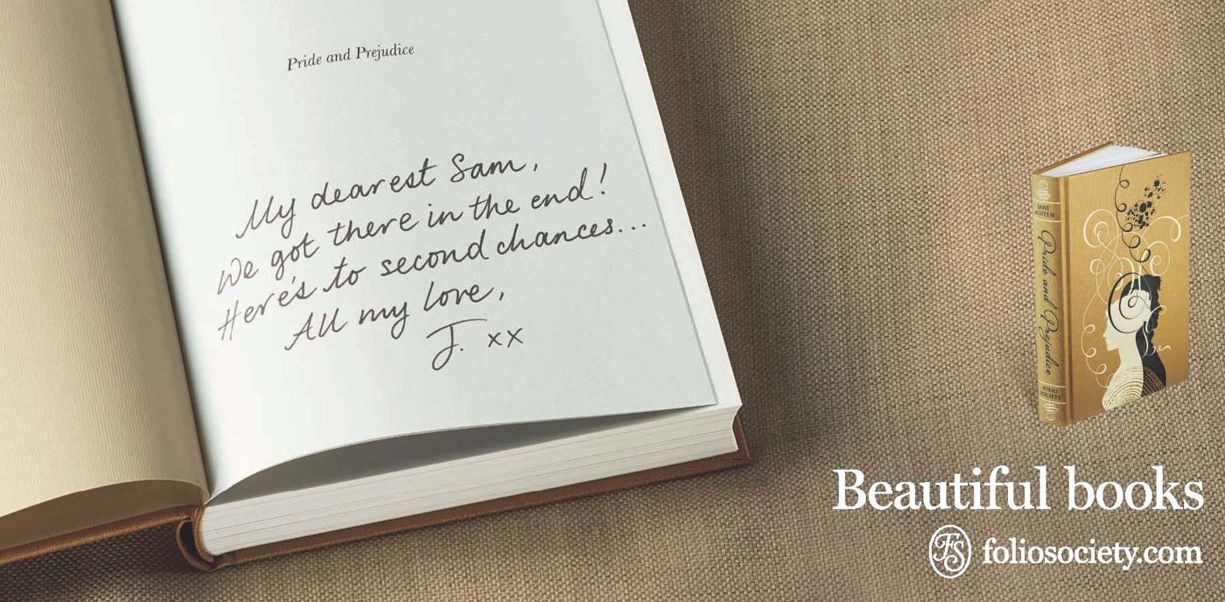 Pride and Prejudice
My dearest Sam,
We got there in the end!
Here's to second chances...
All my love,
J. xx
JANE
AUSTEN
Pride and Prejudice
FOLIO
SOCIETY
Beautiful books
FS foliosociety.com